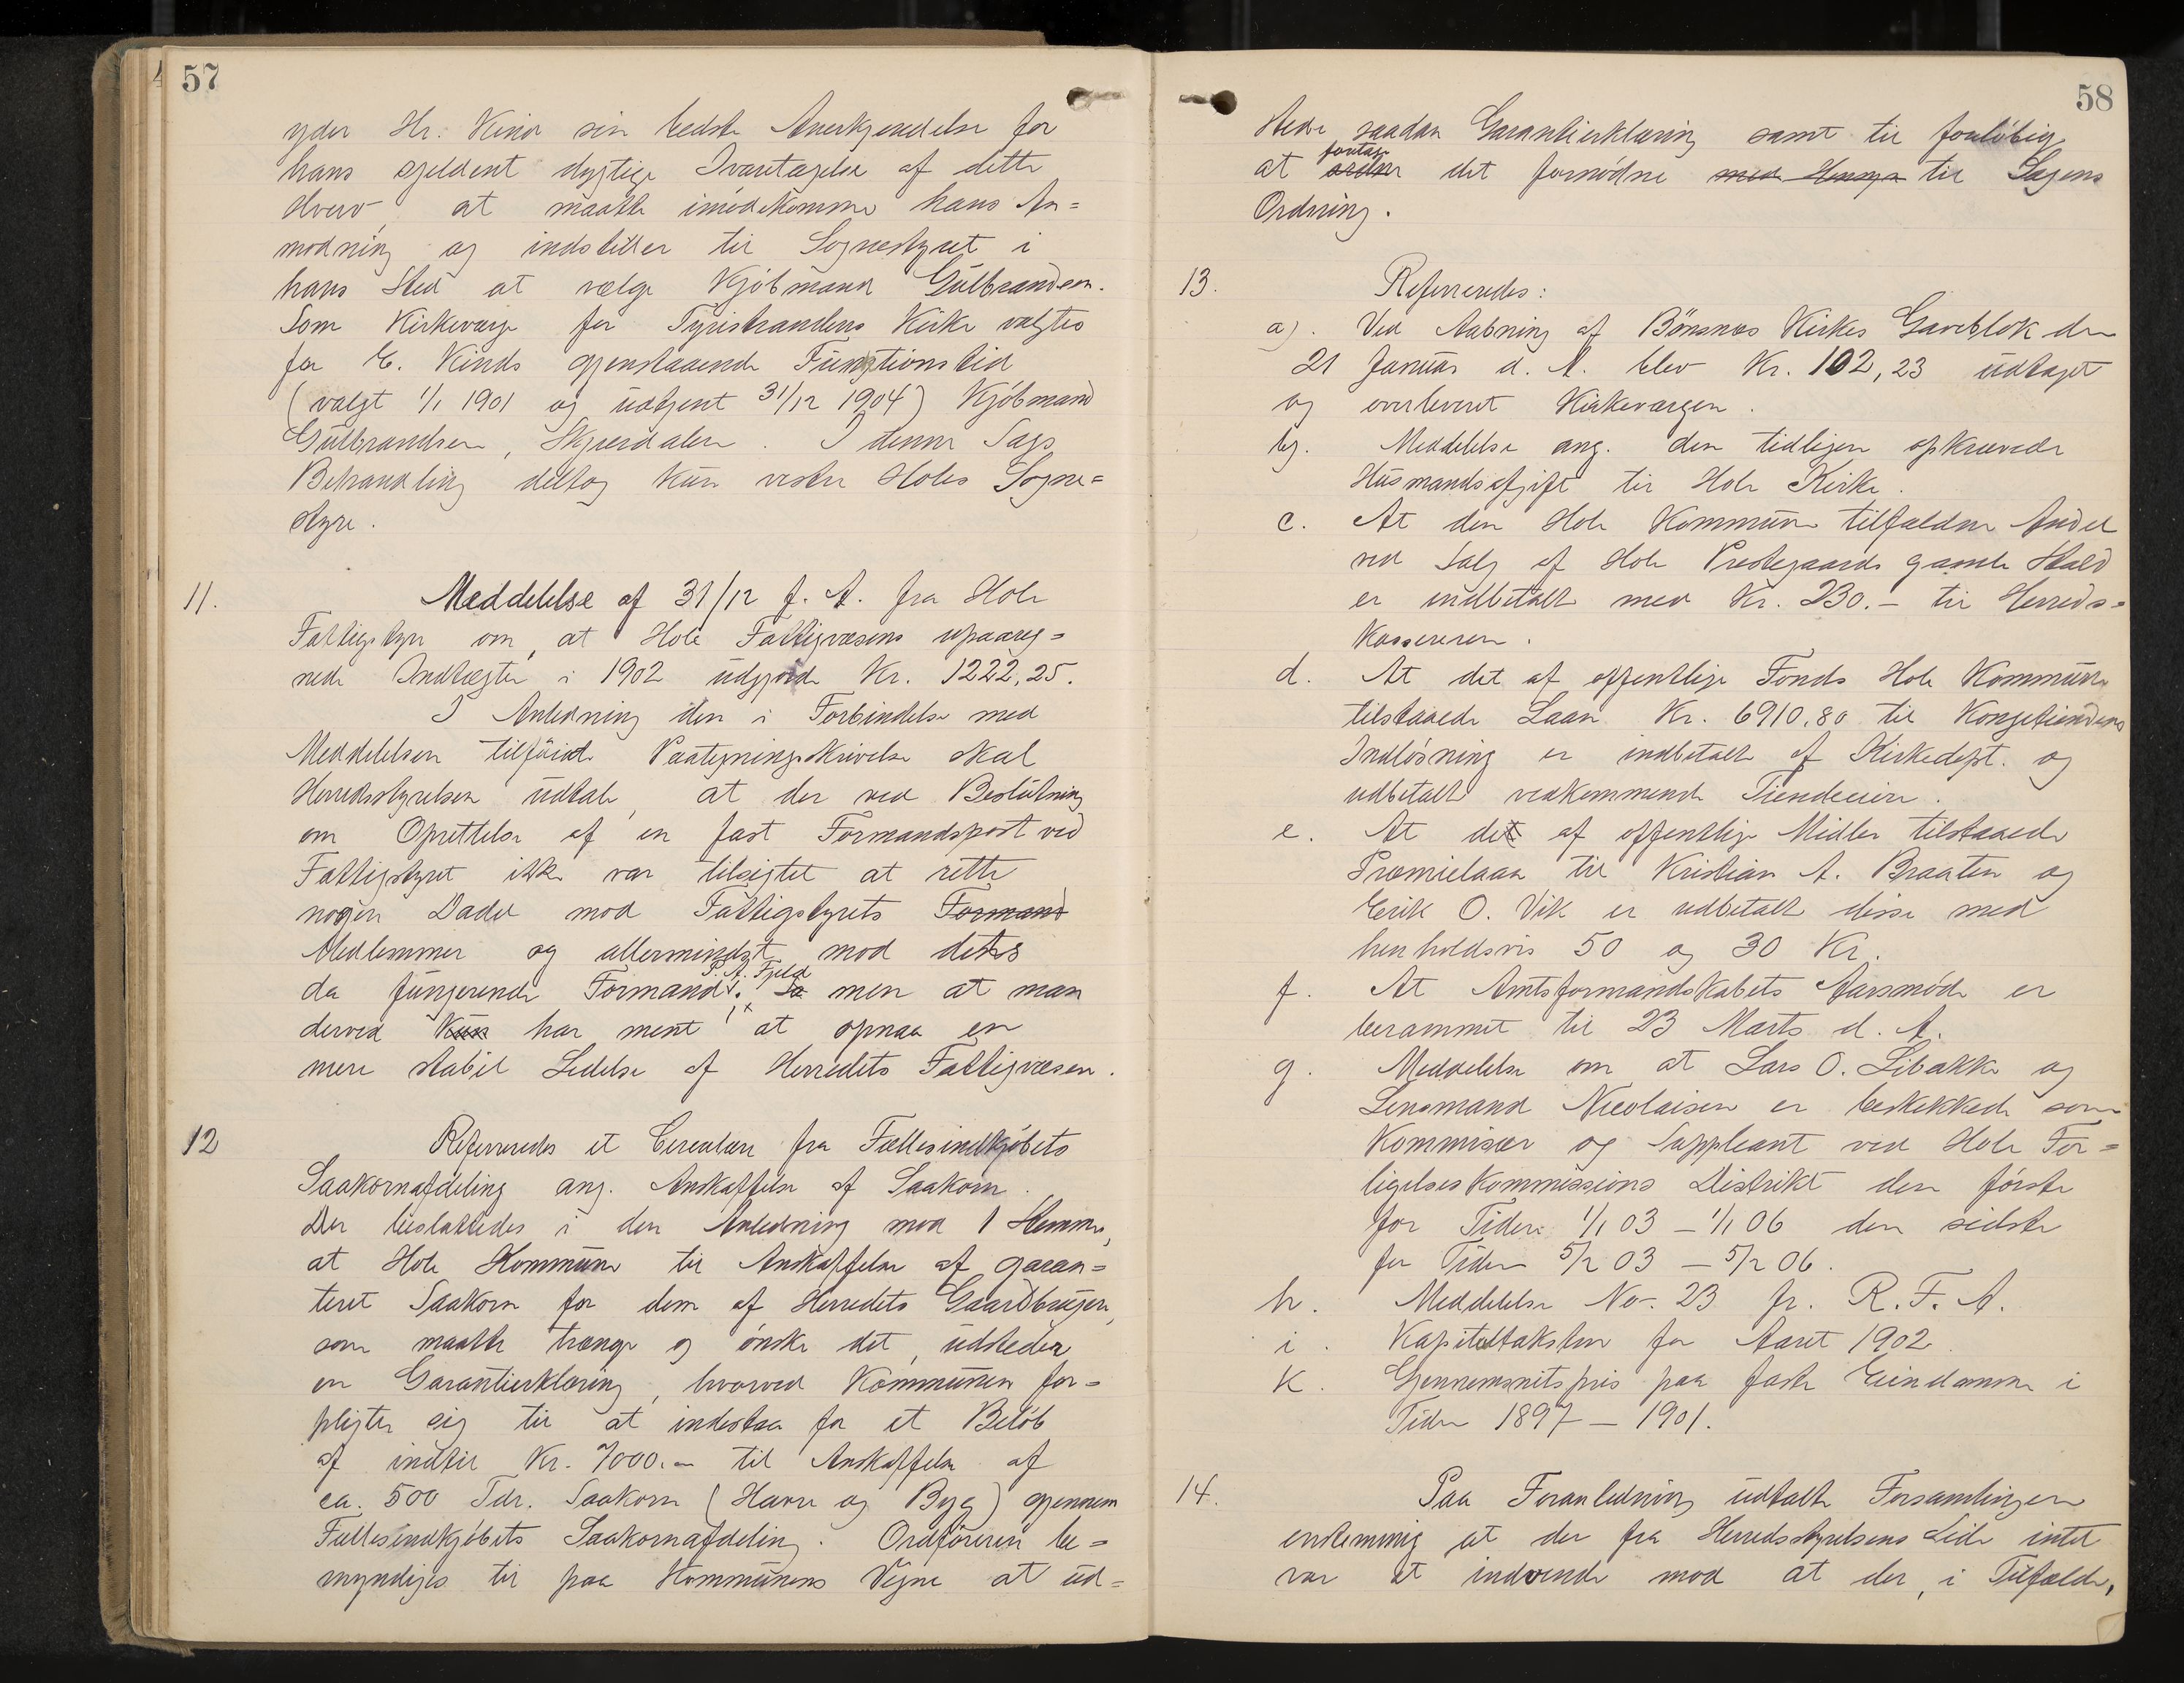 57
yder Hr. Kind sin bedste Anerkjendelse for
hans sjeldent dygtige Ivaretagelse af dette
Hverv, at maatte imødekomme hans An=
modning og indstiller til Sognestyret i
hans Sted at vælge Kjøbmand Gulbrandsen.
Som Kirkeværge for Tyristrandens Kirke valgtes
for E. Kinds gjenstaaende Funktionstid
(valgt 1/1 1901 og udtjent 31/12 1904) Kjøbmand
Gulbrandsen, Skjærdalen. I denne Sags
Behandling deltog kun vestre Holes Sogne=
styre.
11. Meddelelse af 31/12 f. A. fra Hole
Fattigstyre om, at Hole Fattigvæsens upaareg=
nede Indtægter i 1902 udgjorde Kr. 1222,25.
I Anledning den i Forbindelse med
Meddelelsen tilføiede Paategningsskrivelse skal
Herredsstyrelsen udtale, at der ved Beslutning
om Oprettelse af en fast Formandspost ved
Fattigstyret ikke var tilsigtet at rette
nogen Dadel mod Fattigstyrets Formand
Medlemmer og allermindst mod dets
P. A. Fjeld
da fungerende Formand, men at man
derved kun har ment at opnaa en
mere stabil Ledelse af Herredets Fattigvæsen.
12 Refereredes et Circulære fra Fællesindkjøbets
Saakornafdeling ang. Anskaffelse af Saakorn.
Der besluttedes i den Anledning mod 1 Stemme,
at Hole Kommune til Anskaffelse af garan=
teret Saakorn for dem af Herredets Gaardbrugere,
som maatte trænge og ønske det, udsteder
en Garantierklæring, hvorved Kommunen for=
pligter sig til at indestaa for et Beløb
af indtil Kr. 7000.– til Anskaffelse af
ca. 500 Tdr. Saakorn (Havre og Byg) gjennem
Fællesindkjøbets Saakornafdeling. Ordføreren be=
myndiges til paa Kommunens Vegne at ud=
58
stede saadan Garantierklæring samt til foreløbig
foretage
at ordne det fornødne med Hensyn til Sagens
Ordning.
13. Refereredes:
a). Ved Aabning af Bønsnes Kirkes Gaveblok den
21 Januar d. A. blev Kr. 102,23 udtaget
og overleveret Kirkeværgen.
b). Meddelelse ang. den tidligere opkrævede
Husmandsafgift til Hole Kirke.
c. At den Hole Kommune tilfaldne Andel
ved Salg af Hole Prestegaards gamle Stald
er indbetalt med Kr. 230.– til Herreds=
kassereren.
d. At det af offentlige Fonds Hole Kommune
tilstaaede Laan Kr. 6910,80 til Kongetiendens
Indløsning er indbetalt af Kirkedept. og
udbetalt vedkommende Tiendeeiere.
e. At det af offentlige Midler tilstaaede
Præmielaan til Kristian A. Braaten og
Erik O. Vik er udbetalt disse med
henholdsvis 50 og 30 Kr.
f. At Amtsformandskabets Aarsmøde er
berammet til 23 Marts d. A.
g. Meddelelse om at Lars O. Libakke og
Lensmand Nicolaisen er beskikkede som
Kommisær og Suppleant ved Hole For=
ligelseskommissions Distrikt den første
for Tiden 1/1 03 – 1/1 06 den sidste
for Tiden 5/2 03 – 5/2 06.
h. Meddelelse No. 23 fr. R. F. A.
i. Kapiteltakster for Aaret 1902.
k. Gjennemsnitspris paa faste Eiendomme i
Tiden 1897 – 1901.
14. Paa Foranledning udtalte Forsamlingen
enstemmig at der fra Herredsstyrelsens Side intet
var at indvende mod at der, i Tilfælde,